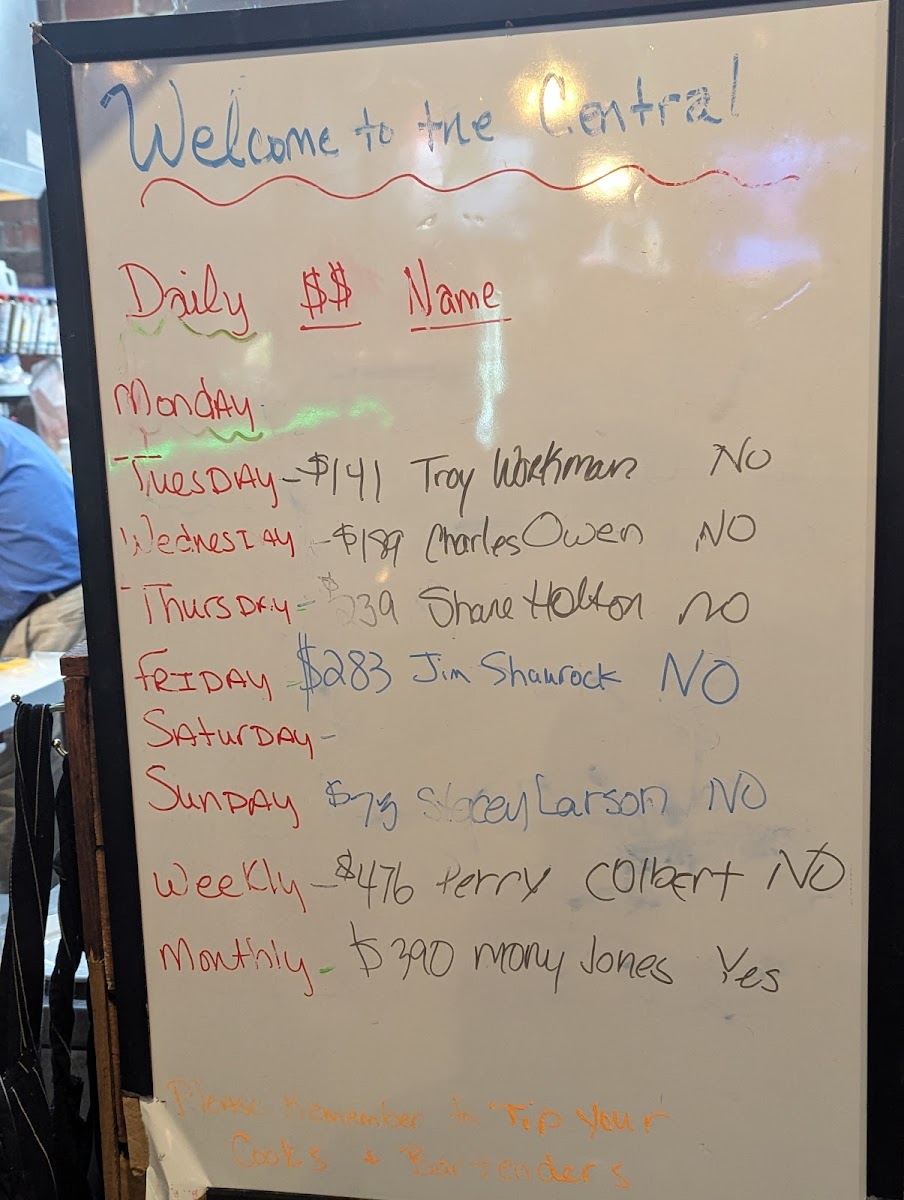 Welcome to the Central
Daily $$ Name
Monday
Tuesday - $141 Troy Workman No
Wednesday - $189 Charles Owen NO
Thursday - $239 Shane Holton NO
FRIDAY - $283 Jim Shaurock NO
SATurDAY -
SUNDAY $73 Stacey Larson NO
Weekly - $476 terry COlbert NO
Monthly - $390 mony Jones Yes
Please Remember to Tip Your
Cooks + Bartenders